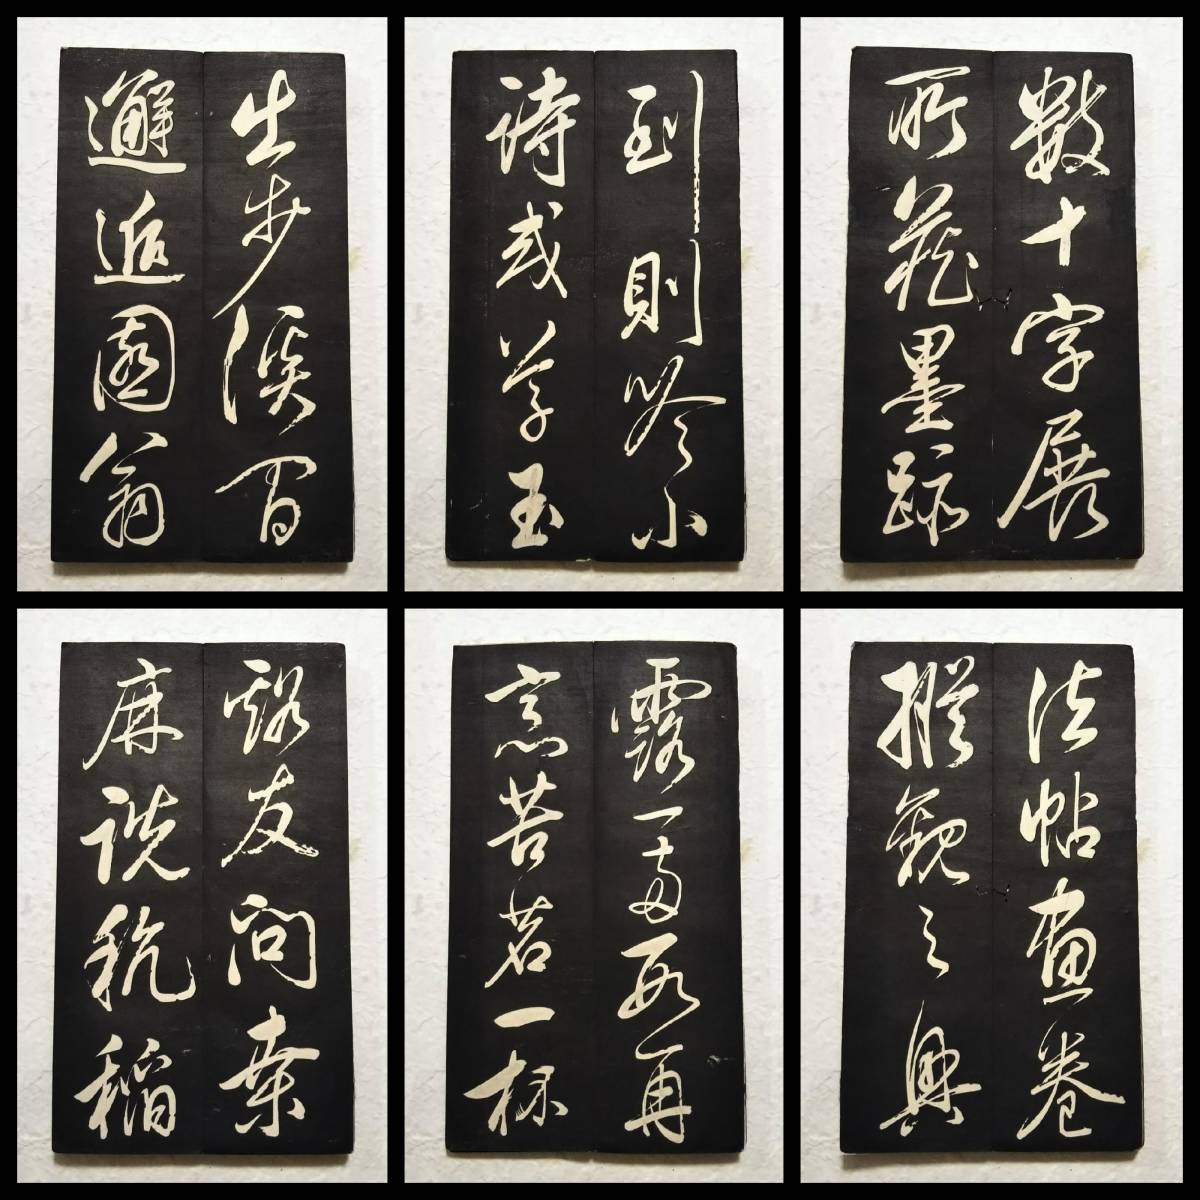 數十字展
所藏墨跡
法帖畫卷
縱觀之興
到則吟小
詩或草玉
露一兩段再
烹苦茗一杯
出步溪間
邂逅園翁
谿友問桑
麻說秔稻